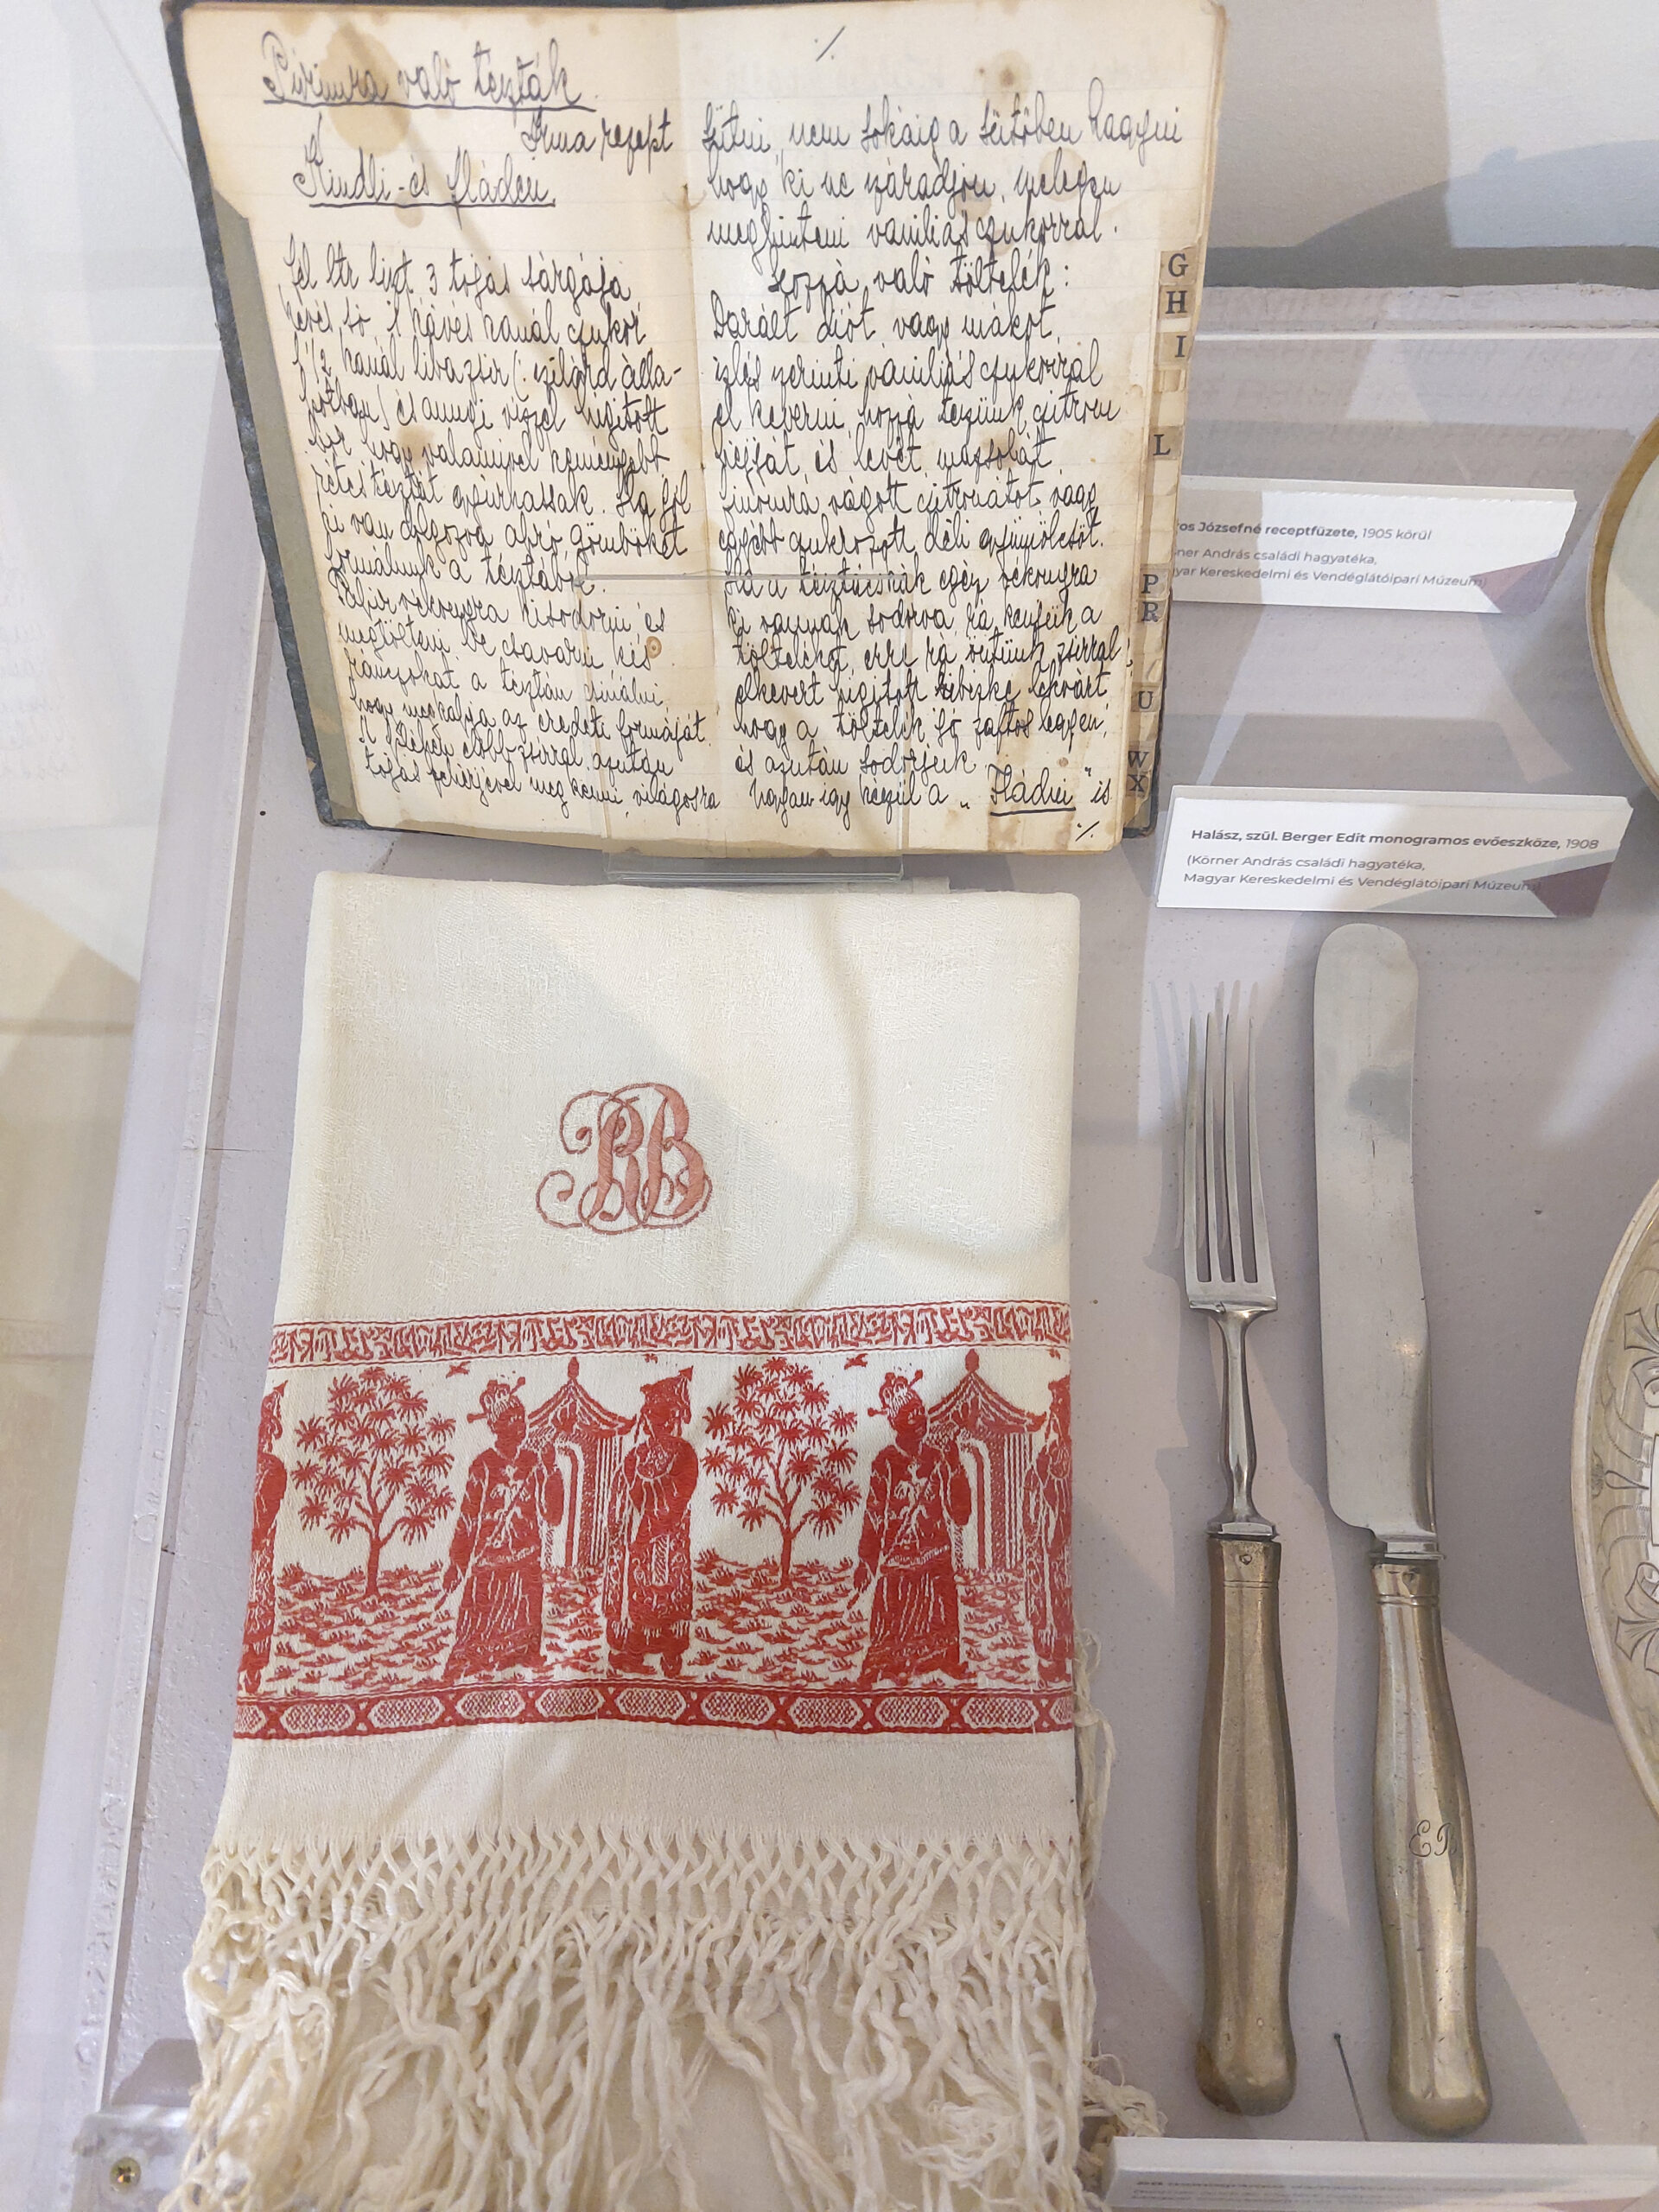 Purimra való tészták
Irma recept
Kindli-és fláden.
fél ltr liszt 3 tojás sárgája
kevés só, 1 kávés kanál czukor
1 1/2 kanál libazsir (szilárd álla-
potban) és annyi vizzel higitott
bor, hogy valamivel keményebb
rétes tésztát gyúrhassak. Ha jól
ki van dolgozva apró gömböket
formálunk a tésztából.
Papir vékonyra kisodorni és
megtölteni, be csavarni kis
ránczokat a tésztán csinálni,
hogy megkapja az eredeti formáját.
A tetejét előbb zsirral, azután
tojás fehérjével meg kenni, világosra
·/.
sütni, nem sokáig a sütőben hagyni
hogy ki ne száradjon, melegen
meghinteni vaniliás czukorral.
Hozzá való töltelék:
Darált diót vagy mákot,
izlés szerinti vaniliás czukorral
el keverni, hozzá teszünk citrom
héjját és levét, mazsolát,
finomra vágott citronátot vagy
egyébb cukrozott déli gyümölcsöt.
Ha a tésztácskák egész vékonyra
ki vannak sodorva, rá kenjük a
tölteléket, erre rá öntünk zsirral
elkevert higitott ribizke lekvárt
hogy a töltelék jó zaftos legyen,
és azután sodorjuk.
Ugyan igy készül a „Fláden" is
·/.
G
H
I
L
P
R
U
W
X
os Józsefné receptfüzete, 1905 körül
ner András családi hagyatéka,
yar Kereskedelmi és Vendéglátóipari Múzeum)
Halász, szül. Berger Edit monogramos evőeszköze, 1908
(Körner András családi hagyatéka,
Magyar Kereskedelmi és Vendéglátóipari Múzeum)
RB
EB